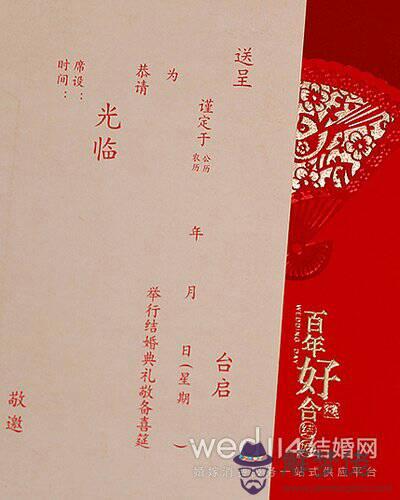 送呈
台启
谨定于
公历
农历
年
月
日(星期 )
为
举行结婚典礼敬备喜筵
恭请
光临
席设：
时间：
敬邀
百年好合
WEDDING DAY
结婚网
一站式供应平台